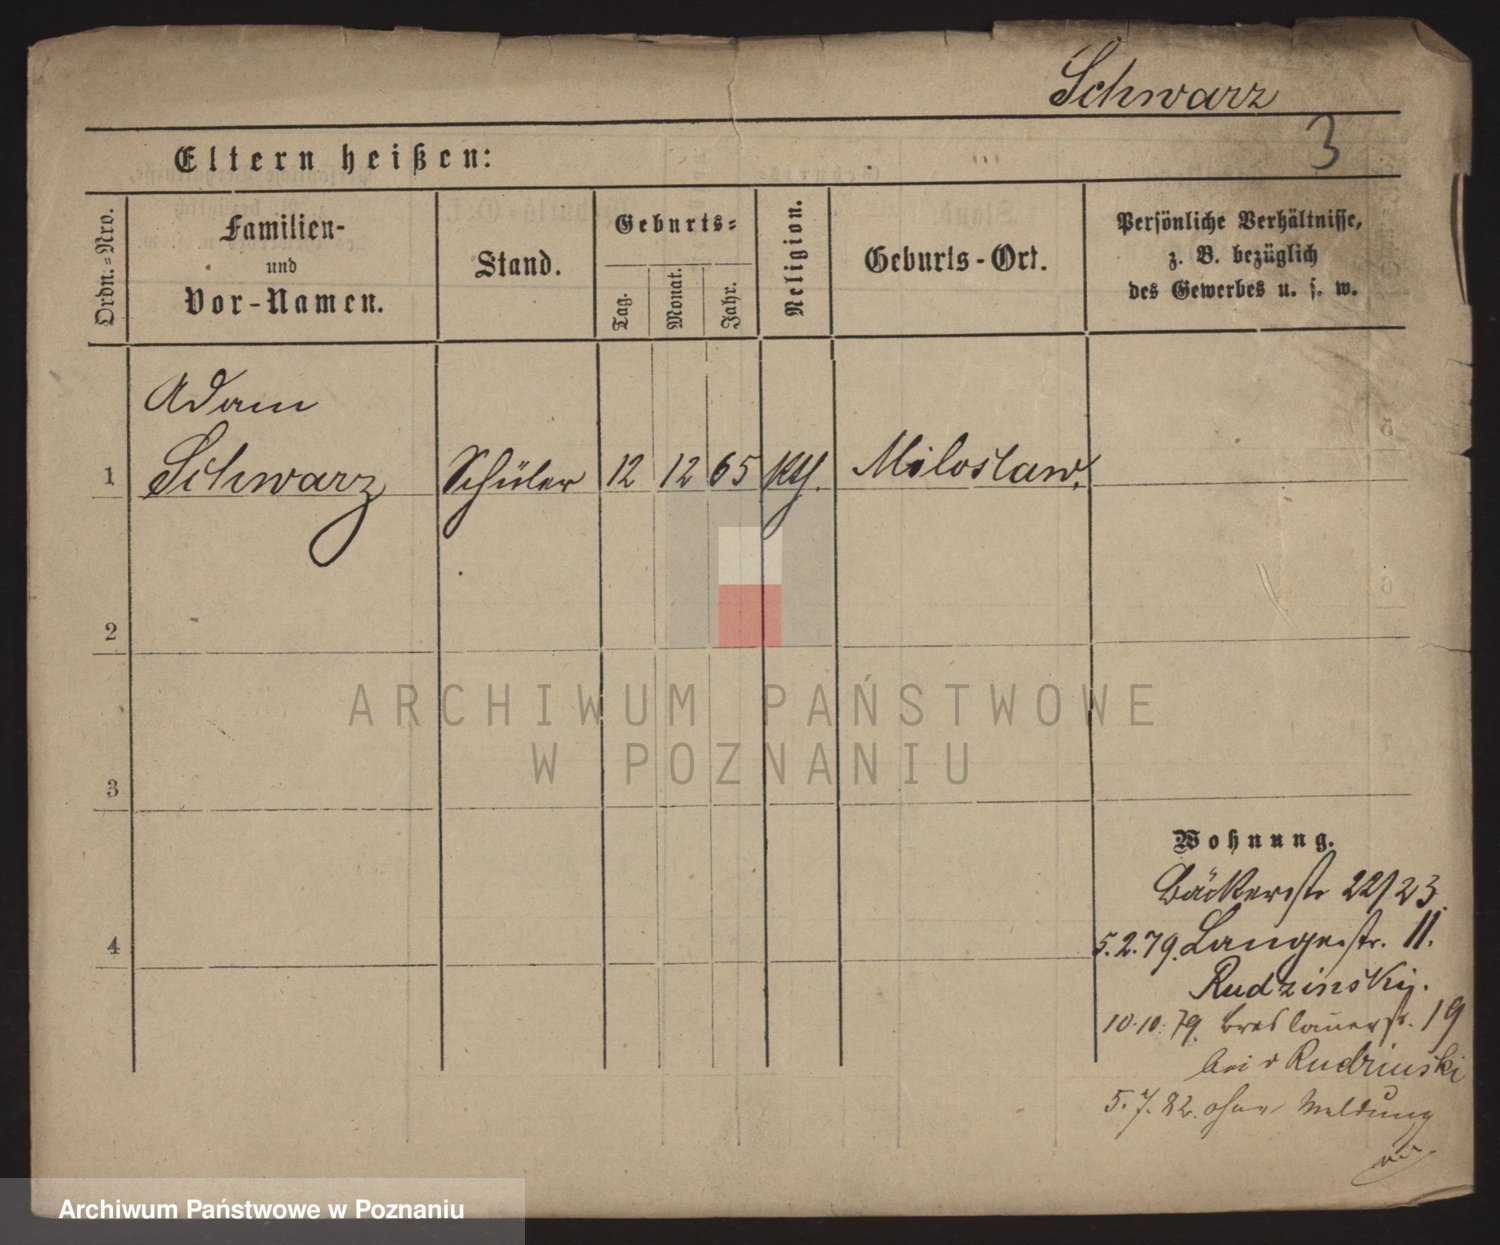 Schwarz
3
Eltern heißen:
Ordn.=Nro.
Familien-
und
Vor-Namen.
Stand.
Geburts=
Tag.
Monat.
Jahr.
Religion.
Geburts-Ort.
Persönliche Verhältnisse,
z. B. bezüglich
des Gewerbes u. s. w.
Adam
1 Schwarz Schüler 12 12 65 kth. Miloslaw.
2
ARCHIWUM PAŃSTWOWE
W POZNANIU
3
Wohnung.
Bäckerstr 22/23.
4
5.2.79. Langestr. 11.
Rudzinsky.
10.10.79. Breslauerst. 19
bei Rudzinski
5.7.82. ohne Meldung
Archiwum Państwowe w Poznaniu